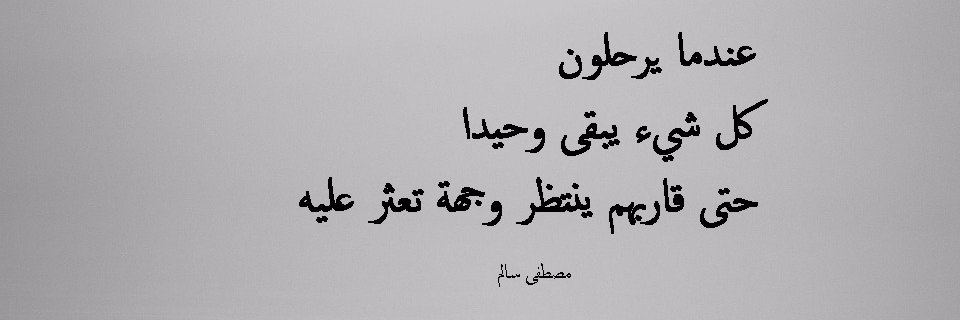 عندما يرحلون
كل شيء يبقى وحيدا
حتى قاربهم ينتظر وجهة تعثر عليه
مصطفى سالم